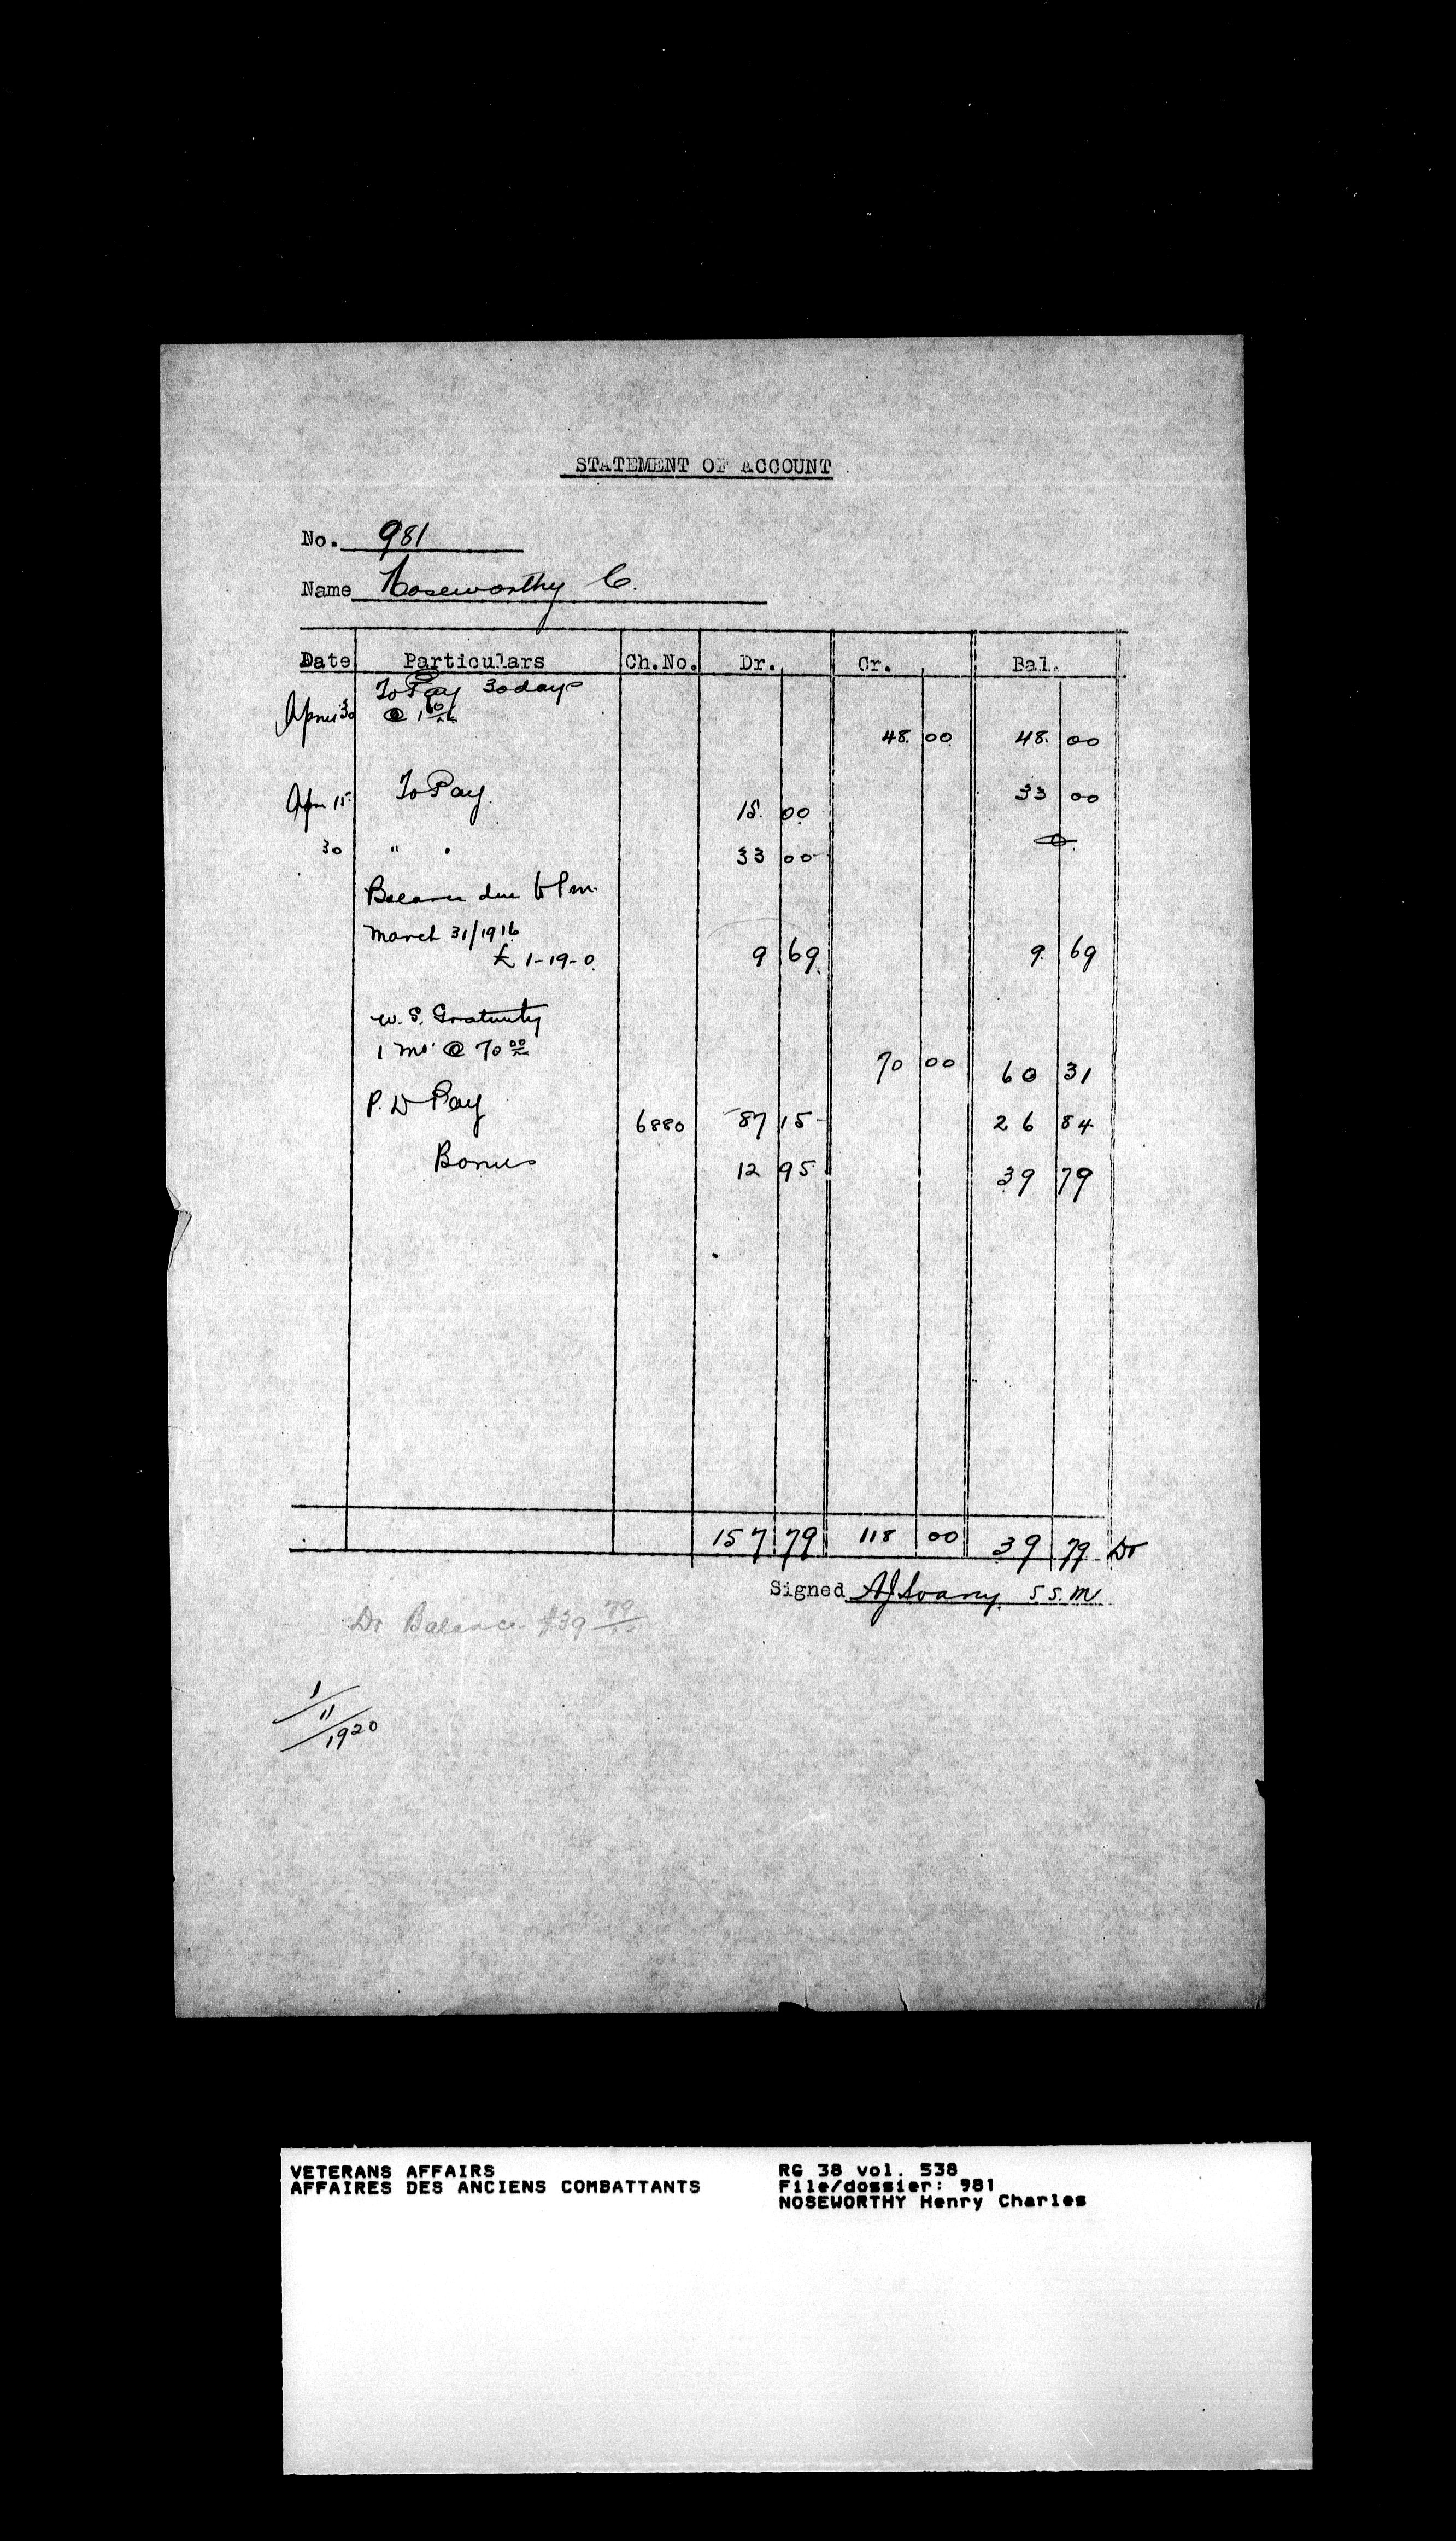 STATEMENT OF ACCOUNT
No. 981
Name Noseworthy C.
Date Particulars Ch.No. Dr. Cr. Bal.
To Pay 30 days
April 30 @ 1 60
48. 00 48. 00
Apr 15 To Pay. 15. 00 33 00
30 " " 33 00 0
Balance due
March 31/1916
£ 1-19-0. 9 69 9. 69
W. S. Gratuity
1 mo @ 70 00 70 00 60 31
P. D Pay 6880 87 15 26 84
Bonus 12 95 39 79
157 79 118 00 39 79 Dr
Signed S.S.M
Dr Balance $39 79
1/11/1920
VETERANS AFFAIRS
AFFAIRES DES ANCIENS COMBATTANTS
RG 38 vol. 538
File/dossier: 981
NOSEWORTHY Henry Charles